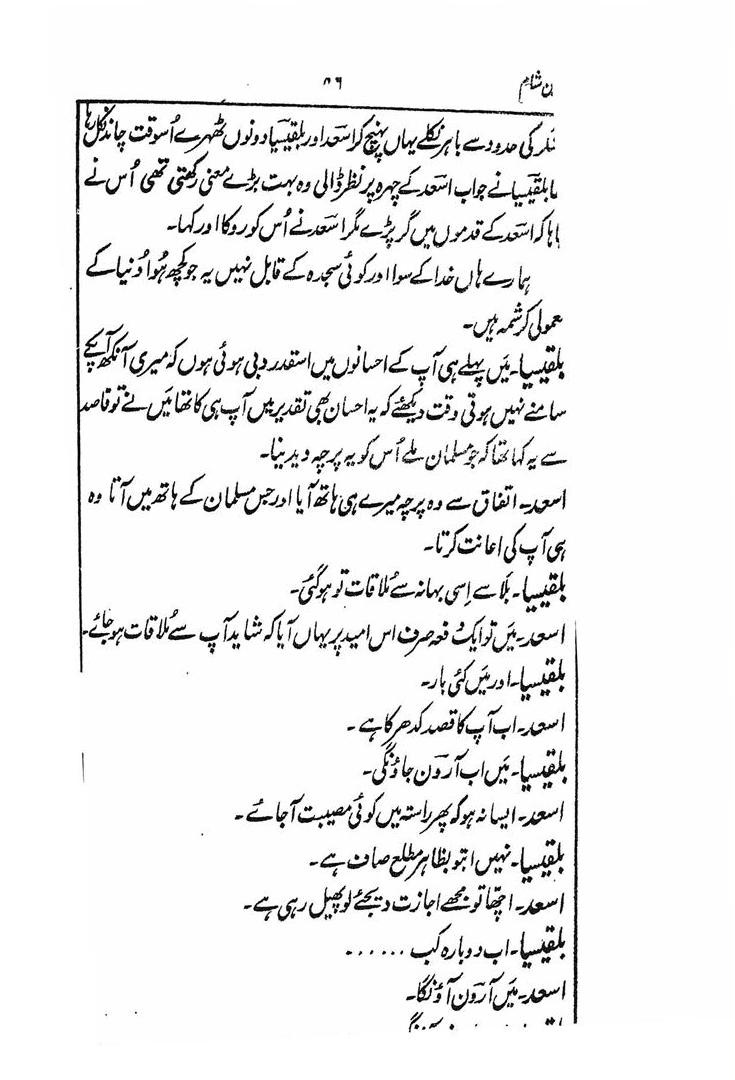 شام ٨٦
کی حدود سے باہر نکلے یہاں پہنچ کر اسعد اور بلقیسیا دونوں ٹھہرے اُسوقت چاند نکل رہا
بلقیسیا نے جواب اسعد کے چہرہ پر نظر ڈالی وہ بہت بڑے معنی رکھتی تھی اُس نے
کہ اسعد کے قدموں میں گر پڑے مگر اسعد نے اُس کو روکا اور کہا۔
ہمارے ہاں خدا کے سوا اور کوئی سجدہ کے قابل نہیں یہ جو کچھ ہُوا دُنیا کے
کرشمہ ہیں۔
بلقیسیا۔ میں پہلے ہی آپ کے احسانوں میں اسقدر دبی ہوئی ہوں کہ میری آنکھ آپکے
سامنے نہیں ہوتی وقت دیکھئے کہ یہ احسان بھی تقدیر میں آپ ہی کا تھا میں نے تو قاصد
سے یہ کہا تھا کہ جو مسلمان ملے اُس کو یہ پرچہ دیدینا۔
اسعد۔ اتفاق سے وہ پرچہ میرے ہی ہاتھ آیا اور جس مسلمان کے ہاتھ میں آتا وہ
ہی آپ کی اعانت کرتا۔
بلقیسیا۔ بلا سے اِسی بہانہ سے مُلاقات تو ہو گئی۔
اسعد۔ میں تو ایک دفعہ صرف اس امید پر یہاں آیا کہ شاید آپ سے مُلاقات ہو جائے۔
بلقیسیا۔ اور میں کئی بار۔
اسعد۔ اب آپ کا قصد کدھر کا ہے۔
بلقیسیا۔ میں اب آرون جاؤنگی۔
اسعد۔ ایسا نہ ہو کہ پھر راستہ میں کوئی مصیبت آجائے۔
بلقیسیا۔ نہیں ابتو بظاہر مطلع صاف ہے۔
اسعد۔ اچھا تو مجھے اجازت دیجئے لو پھیل رہی ہے۔
بلقیسیا۔ اب دوبارہ کب ......
اسعد۔ میں آرون آؤنگا۔